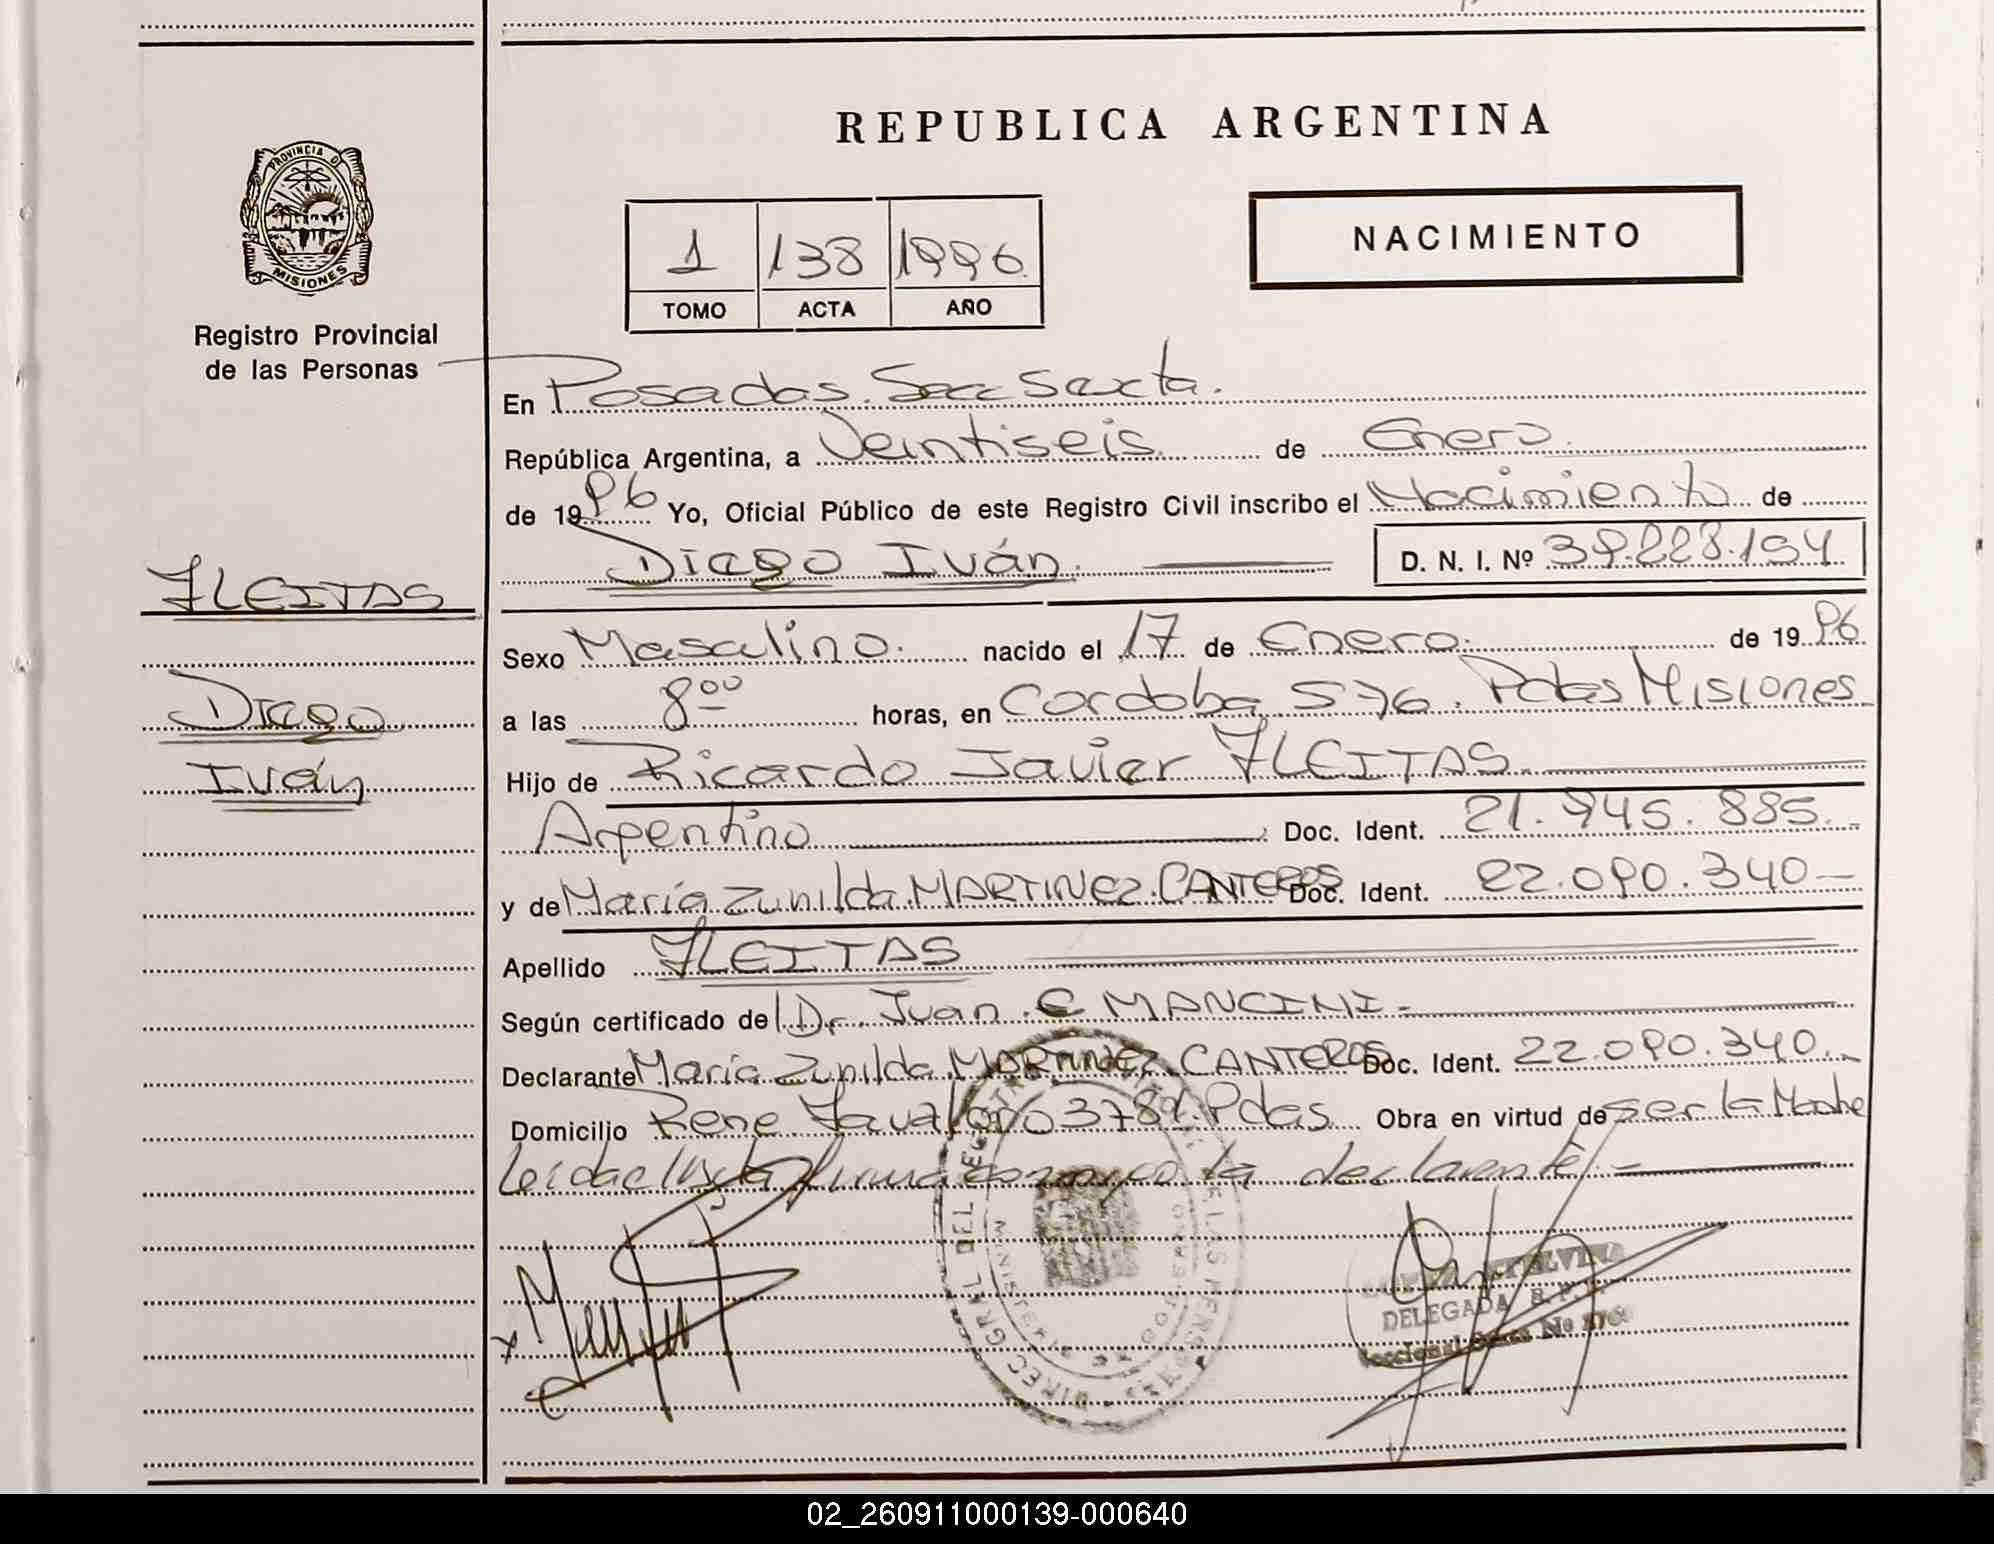 REPUBLICA ARGENTINA
PROVINCIA D
MISIONES
Registro Provincial
de las Personas
1 138 1996
TOMO ACTA AÑO
NACIMIENTO
En Posadas. Secc Sexta.
República Argentina, a Veintiseis de Enero
de 1996 Yo, Oficial Público de este Registro Civil inscribo el Nacimiento de
Diego Iván. D. N. I. Nº 39.223.194
FLEITAS
Diego
Iván
Sexo Masculino. nacido el 17 de Enero. de 1996
a las 8⁰⁰ horas, en Cordoba 576. Pdas Misiones
Hijo de Ricardo Javier FLEITAS
Argentino Doc. Ident. 21.945.885.
y de María Zunilda MARTINEZ CANTEROS Doc. Ident. 22.090.340
Apellido FLEITAS
Según certificado de Dr. Juan C MANCINI
Declarante María Zunilda MARTINEZ CANTEROS Doc. Ident. 22.090.340
Domicilio Rene Pdas. Obra en virtud de ser la Madre
Leida el Acta firma conmigo la declarante.
DELEGADA
02_260911000139-000640